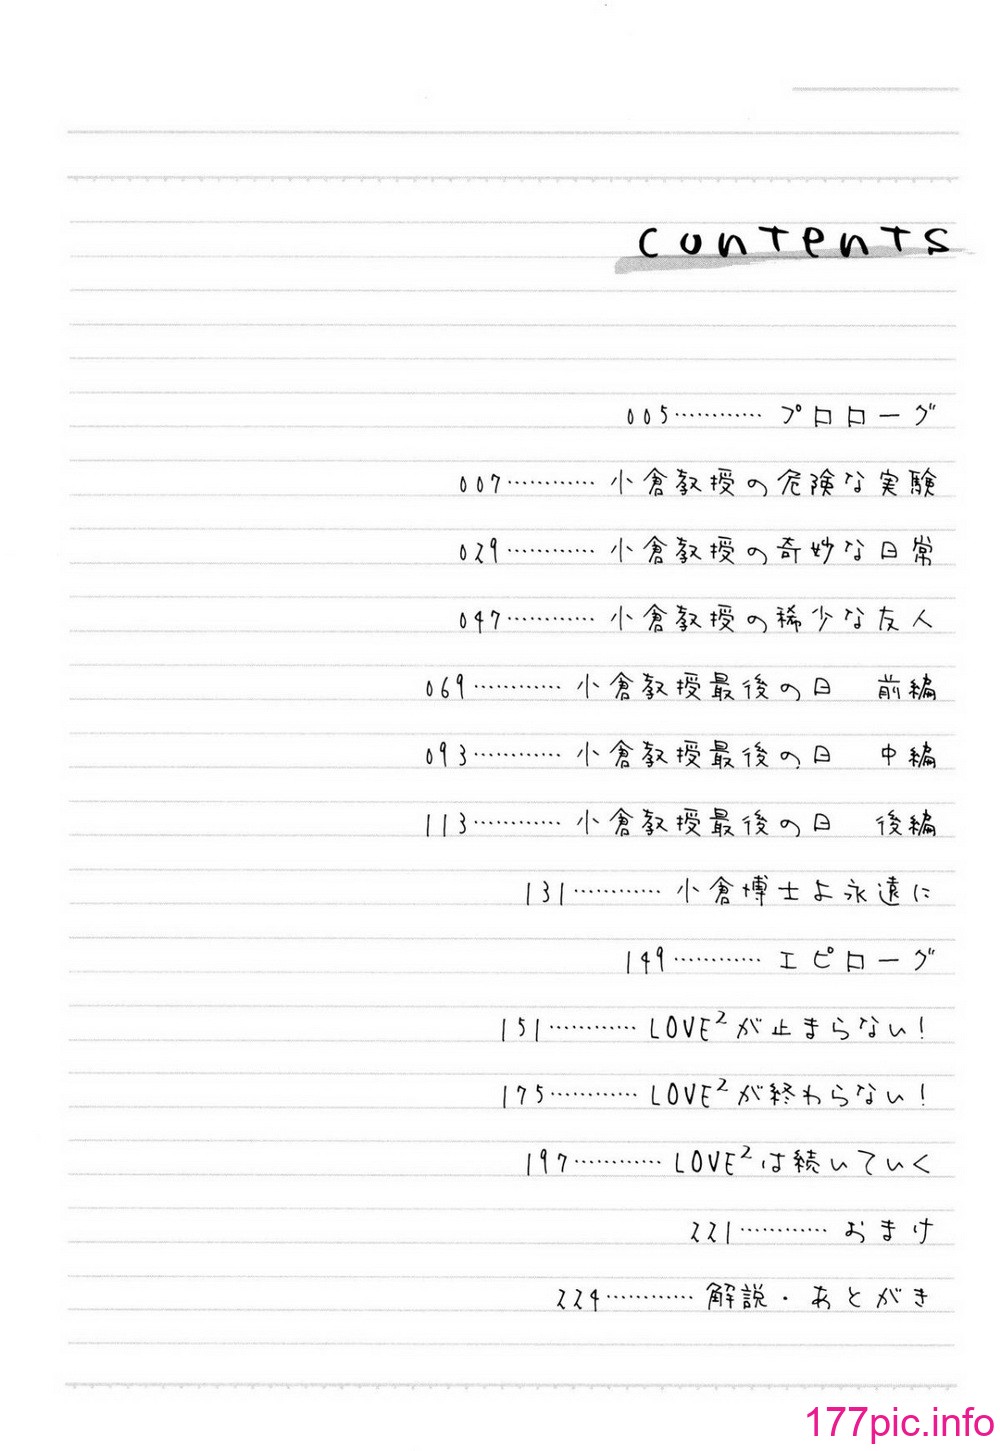 contents
005………… プロローグ
007………… 小倉教授の危険な実験
029………… 小倉教授の奇妙な日常
047………… 小倉教授の稀少な友人
069………… 小倉教授最後の日　前編
093………… 小倉教授最後の日　中編
113………… 小倉教授最後の日　後編
131………… 小倉博士よ永遠に
149………… エピローグ
151………… LOVE²が止まらない!
175………… LOVE²が終わらない!
197………… LOVE²は続いていく
221………… おまけ
224………… 解説・あとがき
177pic.info